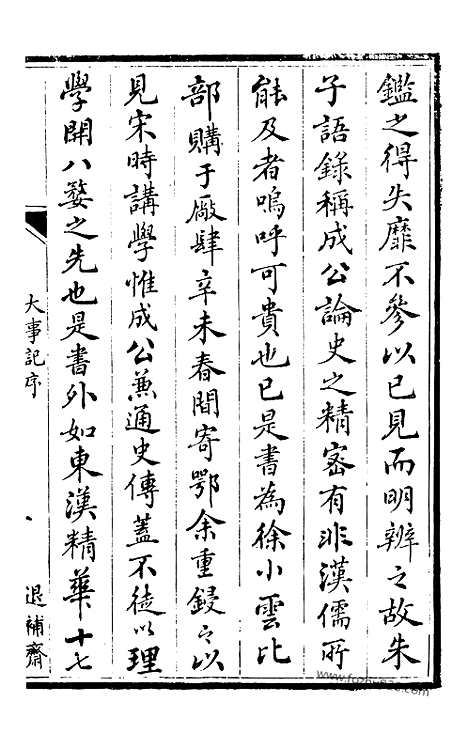 鑑之得失靡不參以已見而明辨之故朱
子語錄稱成公論史之精密有非漢儒所
能及者嗚呼可貴也已是書為徐小雲比
部購于廠肆辛未春間寄鄂余重鋟之以
見宋時講學惟成公兼通史傳蓋不徒以理
學開八婺之先也是書外如東漢精華十七
大事記序
八
退補齋